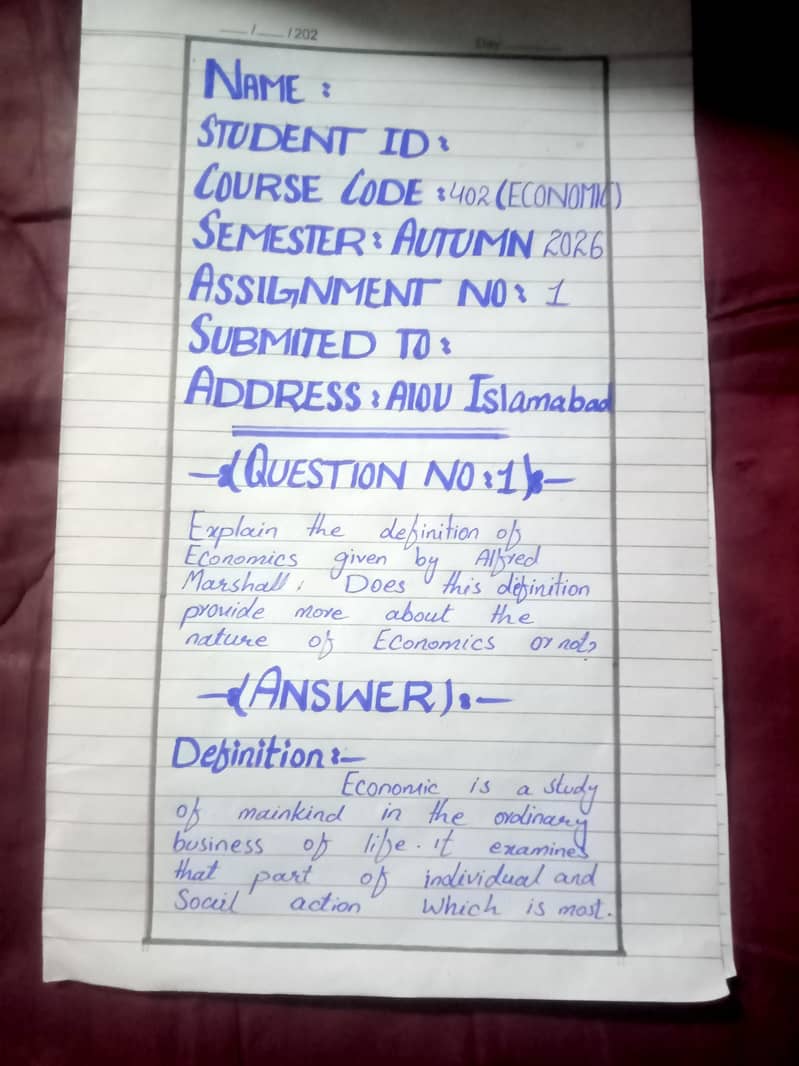 __/__/202
Day
NAME :
STUDENT ID:
COURSE CODE :402 (ECONOMIC)
SEMESTER: AUTUMN 2026
ASSIGNMENT NO: 1
SUBMITED TO:
ADDRESS: AIOU Islamabad
—{QUESTION NO:1}:—
Explain the definition of
Economics given by Alfred
Marshall. Does this definition
provide more about the
nature of Economics or not?
—{ANSWER}:—
Definition:—
Economic is a study
of mainkind in the ordinary
business of life. it examines
that part of individual and
Socail action Which is most.